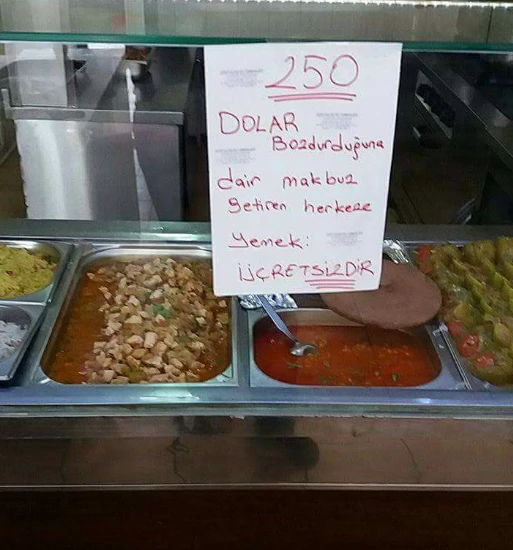 250
DOLAR
Bozdurduğuna
dair makbuz
getiren herkeze
Yemek:
ÜCRETSİZDİR